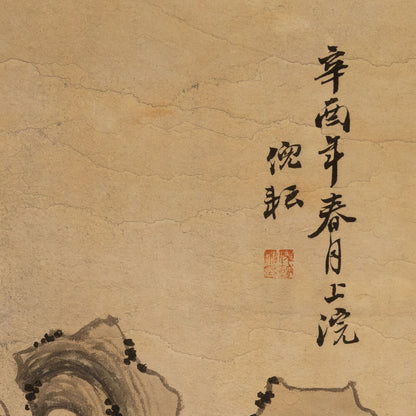 辛酉年春月上浣
倪耘